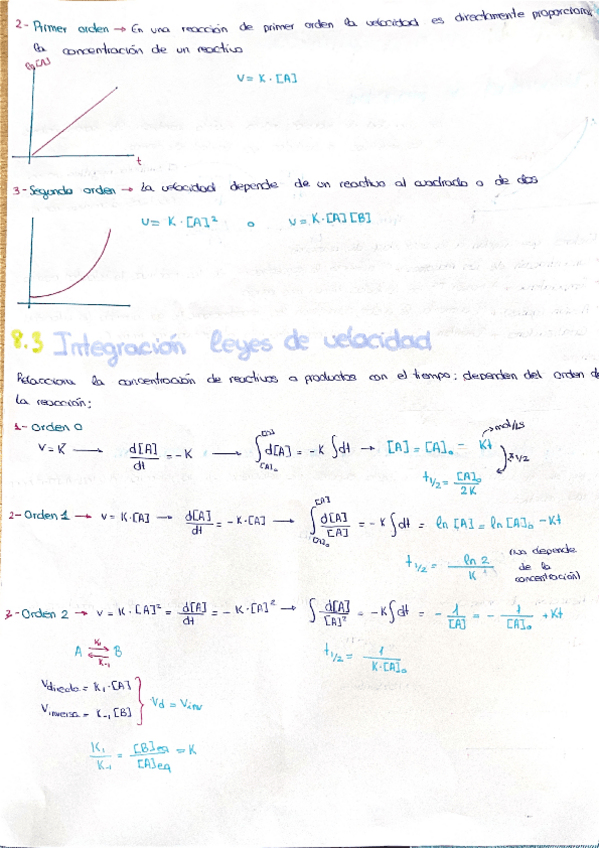 2- Primer orden → En una reacción de primer orden la velocidad es directamente proporcional
la concentración de un reactivo
V = K · [A]
t
3- Segundo orden → la velocidad depende de un reactivo al cuadrado o de dos
V = K · [A]² o V = K · [A][B]
8.3 Integración leyes de velocidad
Relacciona la concentración de reactivos o productos con el tiempo; dependen del orden de
la reacción:
1- Orden 0
→ mol/Ls
V = K → d[A]/dt = -K → ∫[A]₀[A] d[A] = -K ∫dt → [A] = [A]₀ = Kt
t1/2
t1/2 = [A]₀/2K
2- Orden 1 → V = K·[A] → d[A]/dt = -K·[A] → ∫[A]₀[A] d[A]/[A] = -K ∫dt = ln [A] = ln [A]₀ - Kt
t1/2 = ln 2/K (no depende
de la
concentración)
3- Orden 2 → V = K·[A]² = d[A]/dt = -K·[A]² → ∫ d[A]/[A]² = -K∫dt = - 1/[A] = - 1/[A]₀ + Kt
A ⇌ B
K₋₁
t1/2 = 1/K·[A]₀
Vdirecta = K₁·[A]
Vinversa = K₋₁[B]
Vd = Vinv
K₁/K₋₁ = [B]eq/[A]eq = K